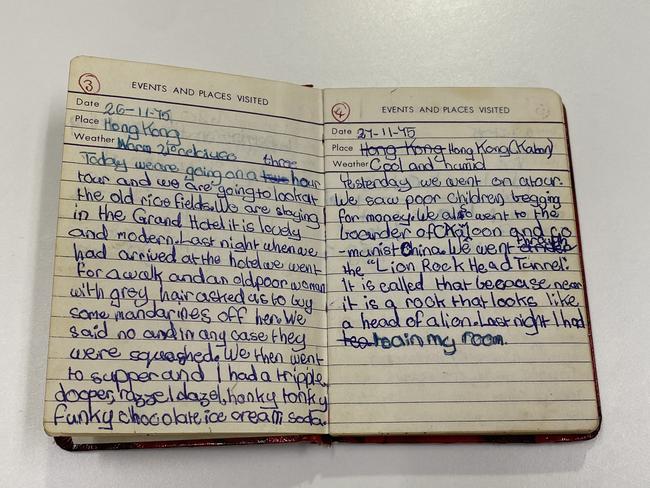 3
EVENTS AND PLACES VISITED
Date 26-11-75
Place Hong Kong
Weather Warm 21° celsiuso
three
Today we are going on a two hour
tour and we are going to look at
the old rice fields. We are staying
in the Grand Hotel it is lovely
and modern. Last night when we
had arrived at the hotel we went
for a walk and an old poor woman
with grey hair asked us to buy
some mandarines off her. We
said no and in any case they
were squashed. We then went
to supper and I had a tripple,
dooper, razzel dazel, honky tonky
funky chocolate ice cream soda.
4
EVENTS AND PLACES VISITED
Date 27-11-75
Place Hong Kong Hong Kong
Weather Cool and humid
Yesterday we went on a tour.
We saw poor children begging
for money. We also went to the
boarder of and co
-munist China. We went through
the "Lion Rock Head Tunnel".
It is called that because near
it is a rock that looks like
a head of a lion. Last night I had
tea tea in my room.